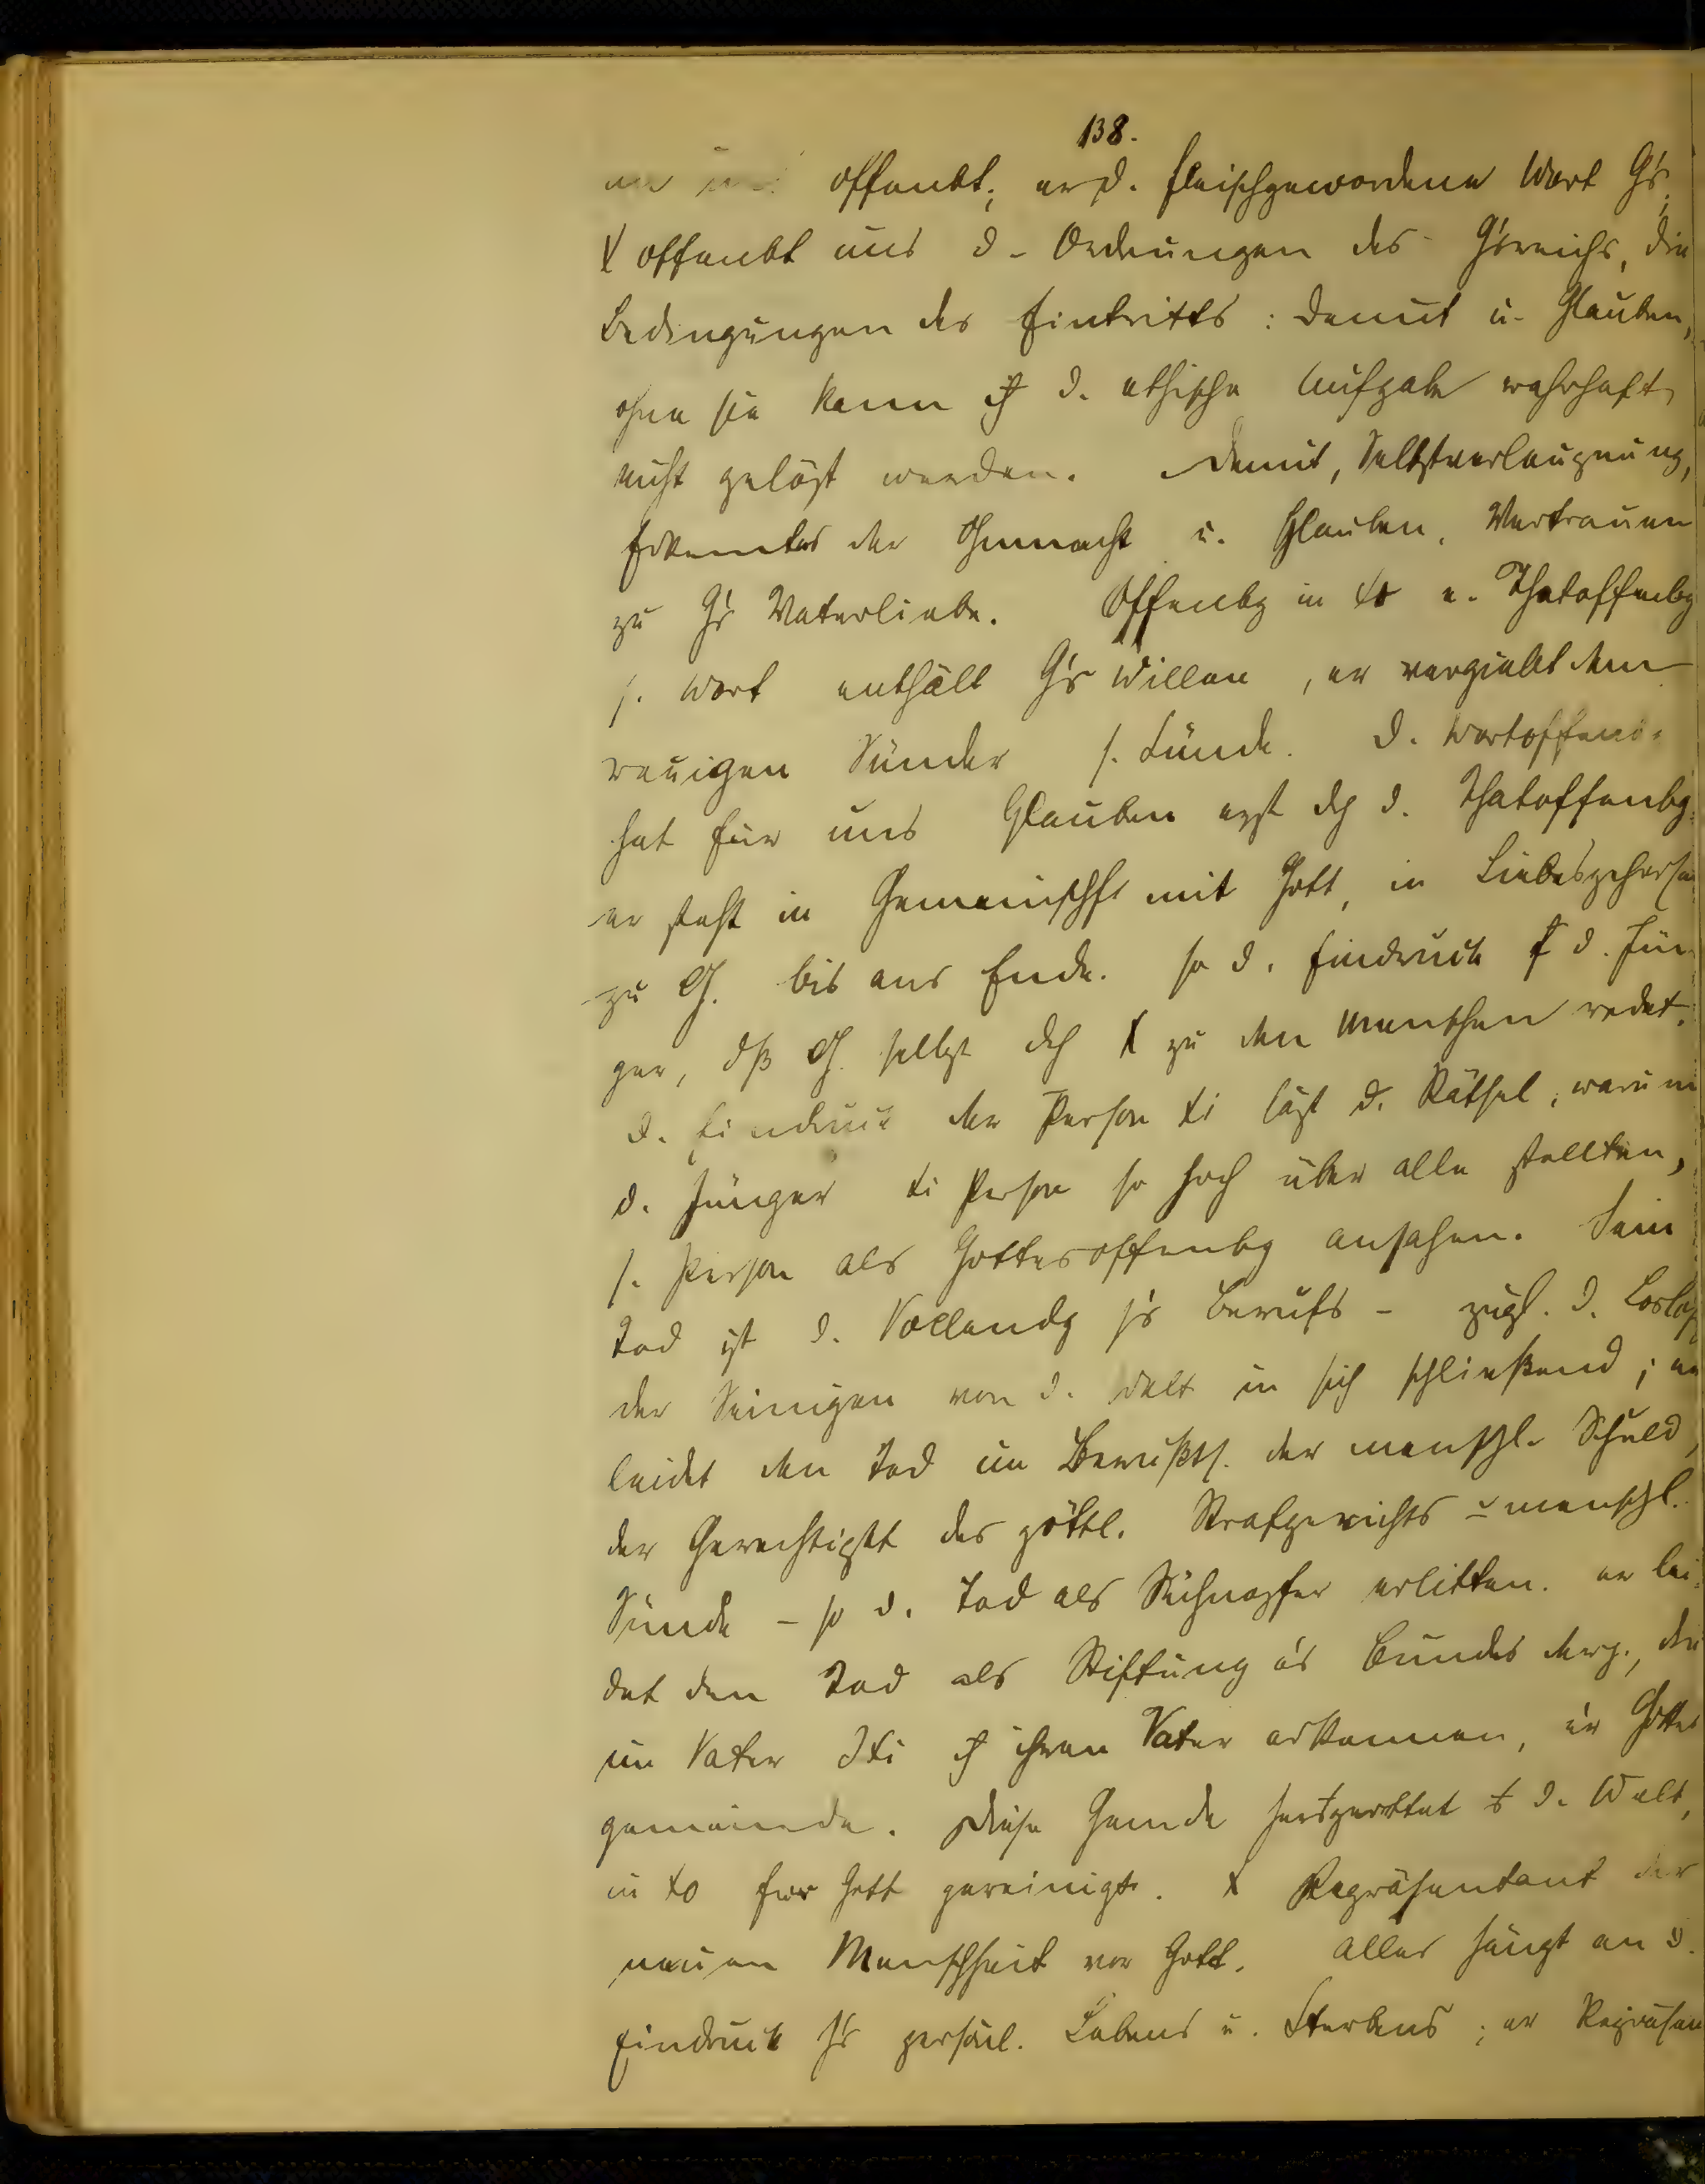 138.
offenbt; er d. fleischgewordene Wort G's.
X offenbt uns d. Ordnungen des G'sreichs, die
Bedingungen des Eintritts: Demut u. Glauben,
ohne sie kann d. ethische Aufgabe wahrhaft
nicht gelöst werden. Demut, Selbstverleugnung,
der Ohnmacht u. Glauben, Vertrauen
zu G's Vaterliebe. Offenbg in Xo e. Thatoffenbg
s. Wort enthält G's Willen, er vergiebt dem
reuigen Sünder s. Sünde. D. Wortoffenb.
hat für uns Glauben erst dch d. Thatoffenbg.
er steht in Gemeinschft mit Gott, in Liebesgehorsam
zu G. bis ans Ende. so d. Eindruck d. Jün-
ger, dß G. selbst dch X zu den Menschen redet.
D. Eindruck der Person Xi löst d. Rätsel, warum
d. Jünger Xi Person so hoch über alle stellten,
s. Person als Gottesoffenbg ansahen. Sein
Tod ist d. Vollendg s's Berufs - zugl. d.
der Seinigen von d. Welt in sich schließend; er
leidet den Tod im Bewußts. der menschl. Schuld,
der Gerechtigkt des göttl. Strafgerichts menschl.
Sünde - so d. Tod als Sühnopfer erlitten. er lei-
det den Tod als Stiftung e's Bundes derj., die
im Vater JXi ihren Vater erkennen, e'r Gottes
gemeinde. Diese Gemde d. Welt,
in Xo für Gott gereinigt. X Repräsentant der
neuen Menschheit vor Gott. Alles hängt an d.
Eindruck s's persönl. Lebens u. Sterbens; er Repräsen